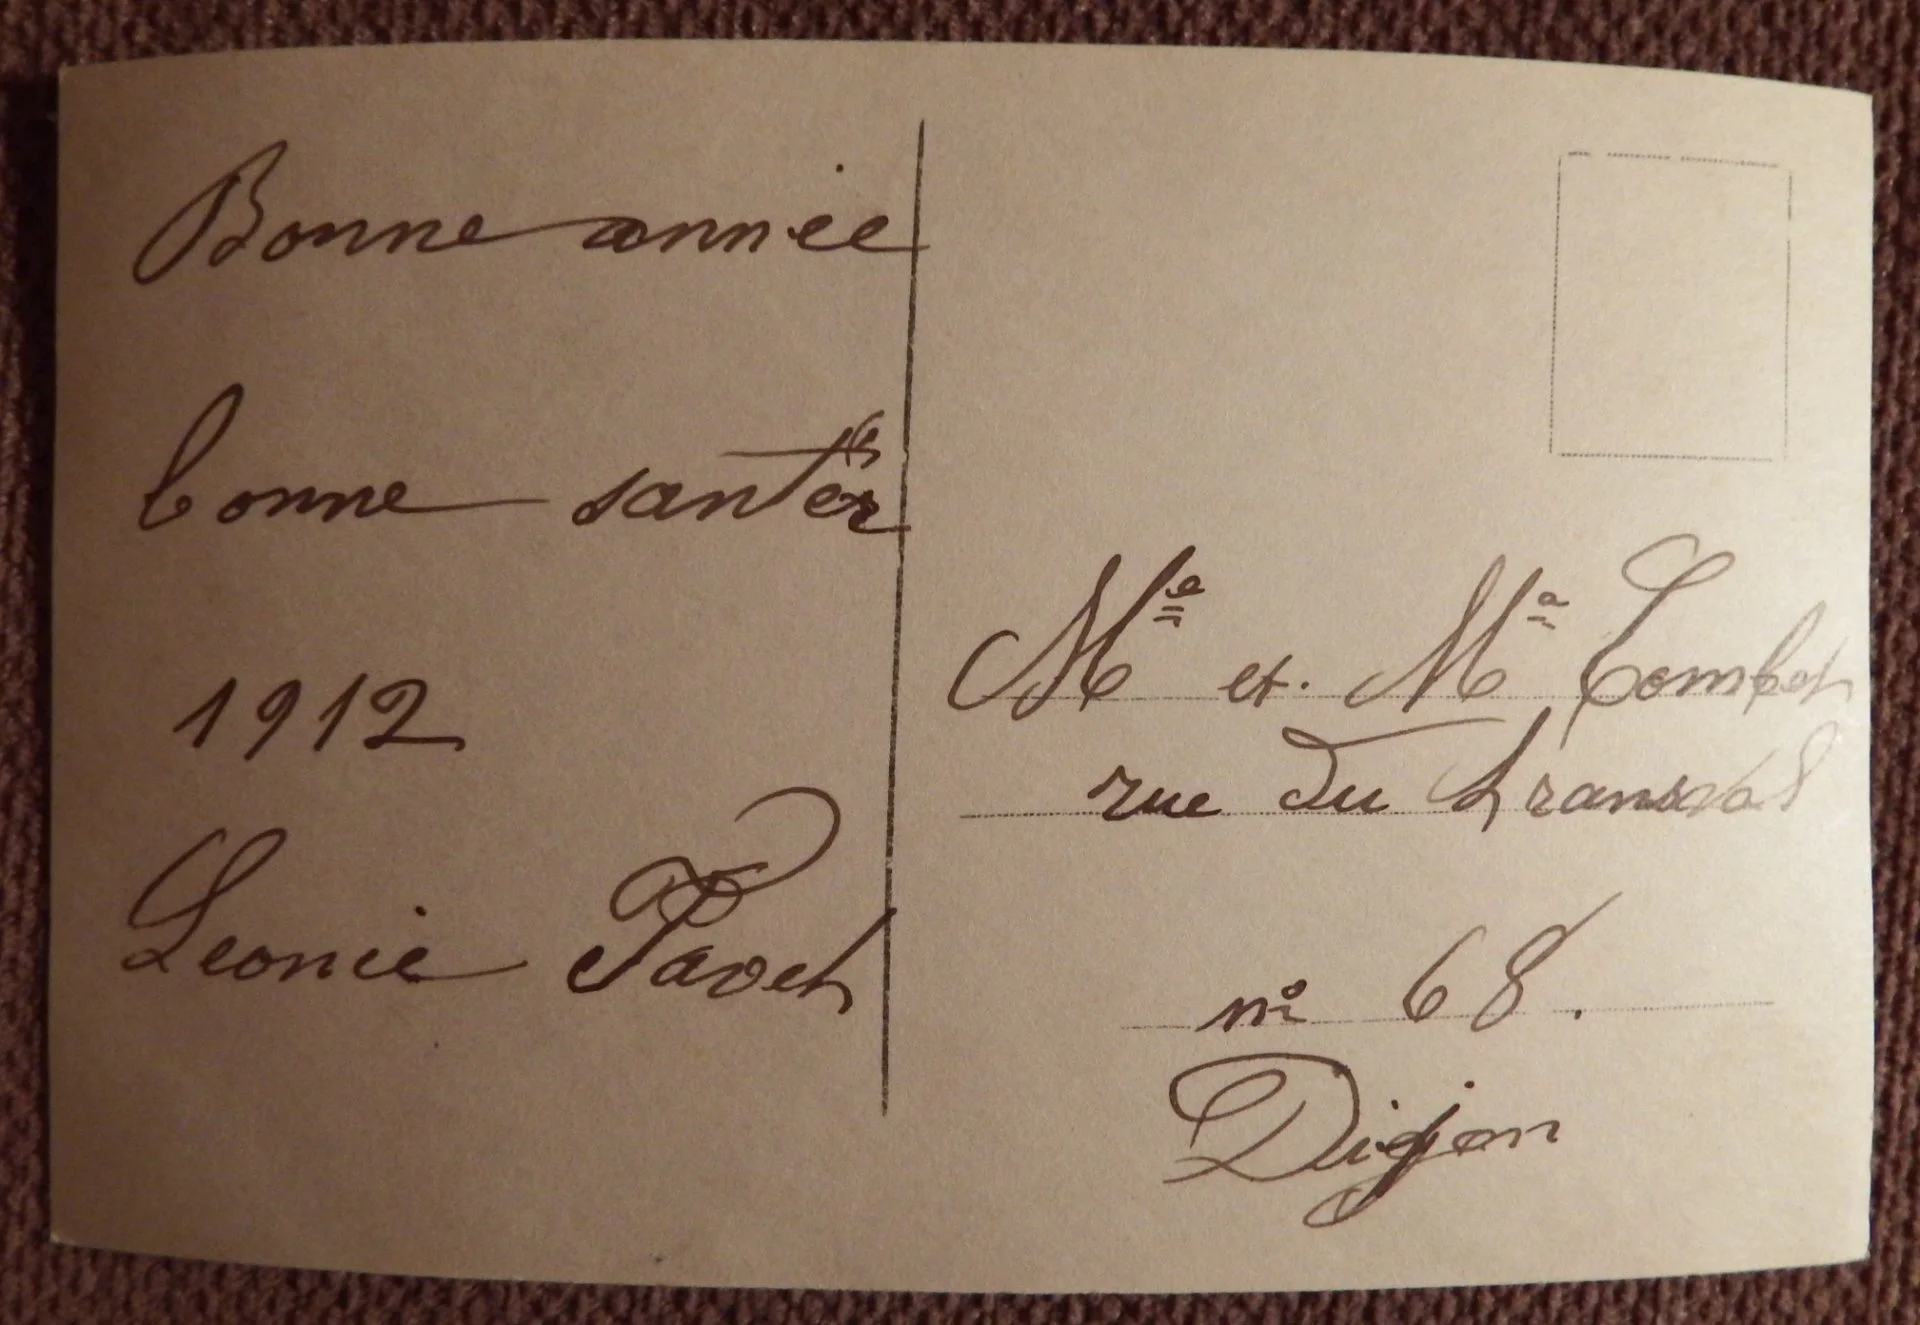 Bonne année
bonne santér
1912
Leonie Pavet
Me et Ma Combet
rue du transval
no 68.
Dijon